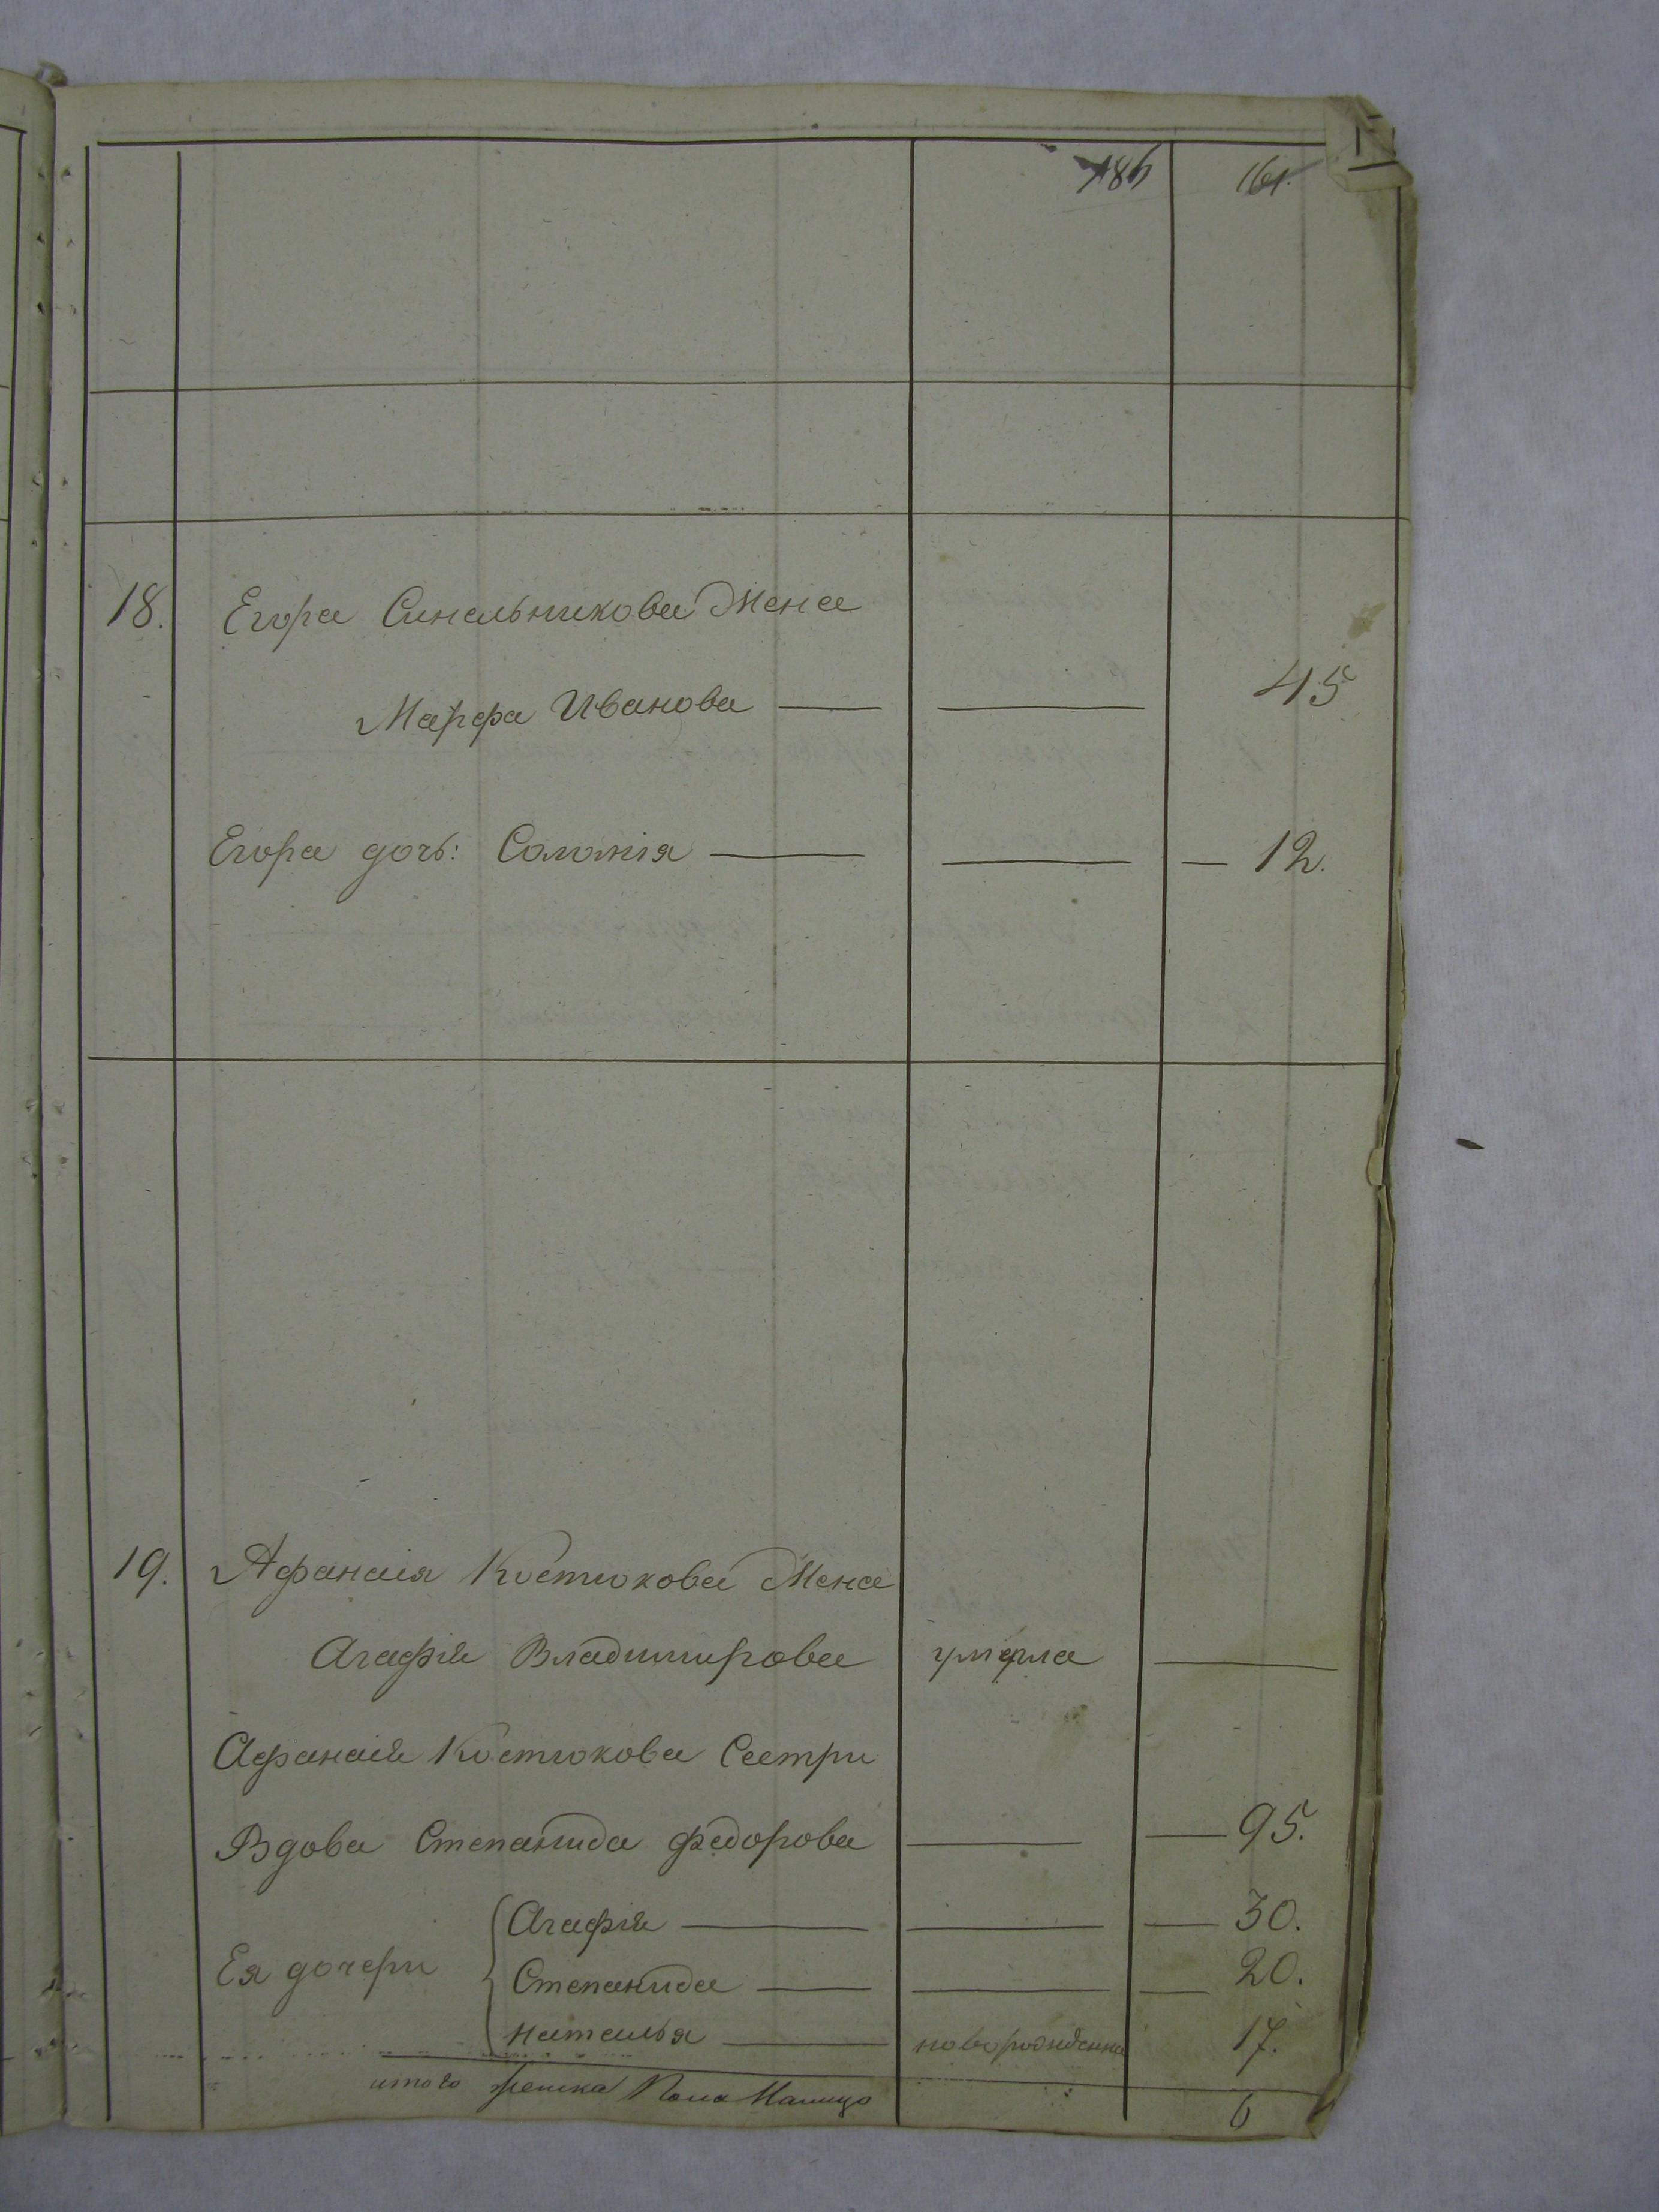 161.
18. Егора Синельникова Жена
Марфа Иванова — — 45
Егора дочь: Соломія — — — 12.
19. Афанасія Костюкова Жена
Агафія Владимирова умерла —
Афанасія Костюкова Сестри
Вдова Степанида Федорова — — 95.
Ея дочери
Агафія — — — 30.
Степанида — — — 20.
Наталья — новорожденна 17.
итого женска Пола Налицо 6